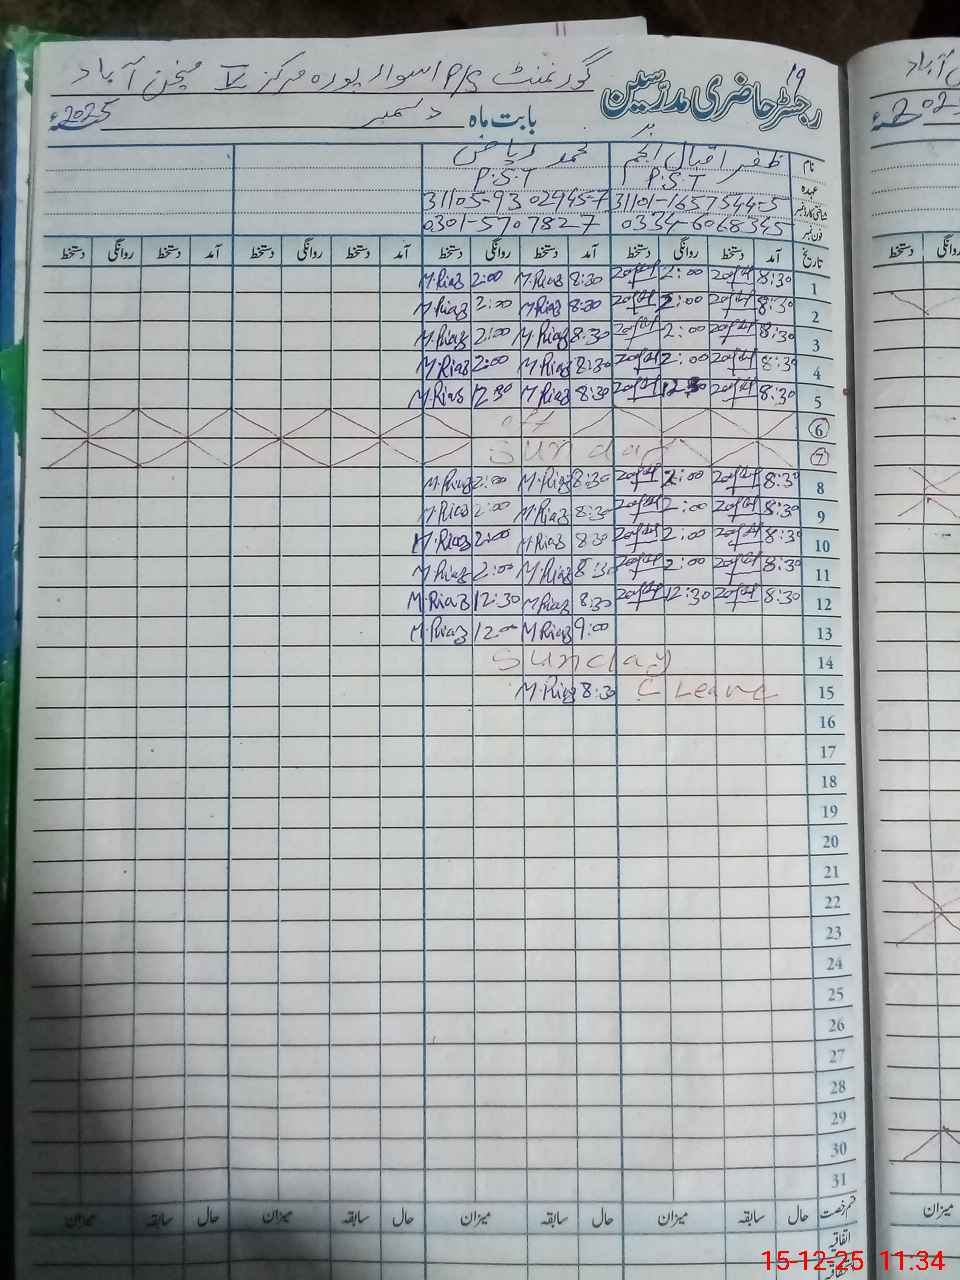 19
رجسٹر حاضری مدرسین گورنمنٹ P/S اسوالہ پورہ مرکز V منچن آباد
بابت ماہ دسمبر 2025ء
نام ظفر اقبال انجم محمد ریاض
عہدہ P.S.T P.S.T
شناختی کارڈ نمبر 31101-1657544-5 31105-9302945-7
فون نمبر 0334-6068345 0301-5707827
تاریخ آمد دستخط روانگی دستخط آمد دستخط روانگی دستخط آمد دستخط روانگی دستخط آمد دستخط روانگی دستخط
1 8:30 2:00 8:30 M.Riaz 2:00 M.Riaz
2 8:30 2:00 8:30 M.Riaz 2:00 M.Riaz
3 8:30 2:00 8:30 M.Riaz 2:00 M.Riaz
4 8:30 2:00 8:30 M.Riaz 2:00 M.Riaz
5 8:30 12:30 8:30 M.Riaz 12:30 M.Riaz
6 off
7 Sunday
8 8:30 2:00 8:30 M.Riaz 2:00 M.Riaz
9 8:30 2:00 8:30 M.Riaz 2:00 M.Riaz
10 8:30 2:00 8:30 M.Riaz 2:00 M.Riaz
11 8:30 2:00 8:30 M.Riaz 2:00 M.Riaz
12 8:30 12:30 8:30 M.Riaz 12:30 M.Riaz
13 9:00 M.Riaz 12:00 M.Riaz
14 Sunday
15 C Leave 8:30 M.Riaz
16
17
18
19
20
21
22
23
24
25
26
27
28
29
30
31
قسم رخصت حال سابقہ میزان حال سابقہ میزان حال سابقہ میزان حال سابقہ میزان
اتفاقیہ
15-12-25 11:34